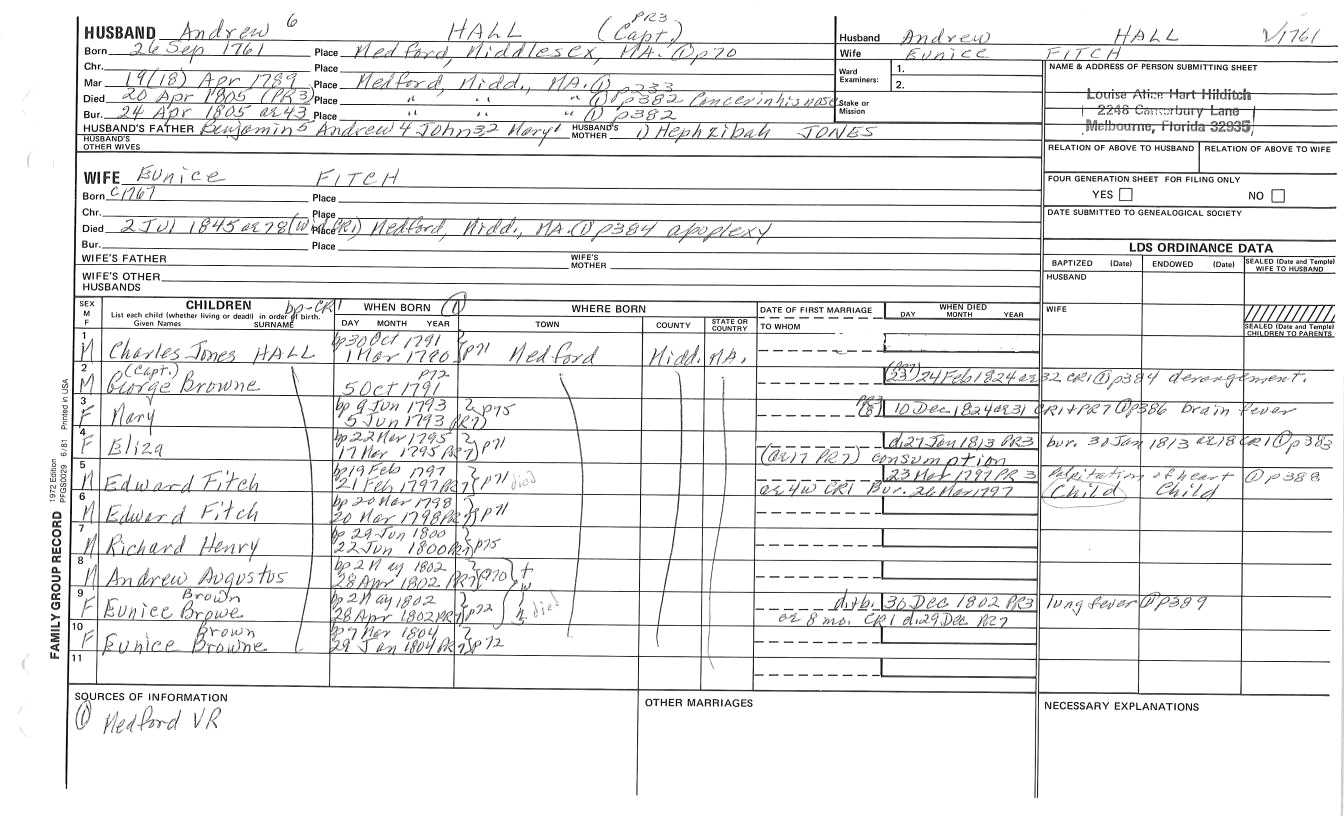 HUSBAND Andrew 6 HALL (Capt.) PR3
Born 26 Sep 1761 Place Medford, Middlesex, MA. ① p70
Chr. Place
Mar 19(18) Apr 1789 Place Medford, Midd., MA. ① p233
Died 20 Apr 1805 (PR3) Place " " " ① p382 Cancer in his nose
Bur. 24 Apr 1805 ae 43 Place " " " ① p382
HUSBAND'S FATHER Benjamin5 Andrew 4 John32 Mary1 HUSBAND'S MOTHER 1) Hephzibah JONES
HUSBAND'S OTHER WIVES
Husband Andrew HALL V1761
Wife Eunice FITCH
Ward Examiners: 1.
2.
Stake or Mission
NAME & ADDRESS OF PERSON SUBMITTING SHEET
Louise Alice Hart Hilditch
2248 Canterbury Lane
Melbourne, Florida 32935
RELATION OF ABOVE TO HUSBAND RELATION OF ABOVE TO WIFE
FOUR GENERATION SHEET FOR FILING ONLY
YES NO
DATE SUBMITTED TO GENEALOGICAL SOCIETY
WIFE Eunice FITCH
Born c1767 Place
Chr. Place
Died 2 Jul 1845 ae 78 (wid CR1) Place Medford, Midd., MA. ① p384 apoplexy
Bur. Place
WIFE'S FATHER WIFE'S MOTHER
WIFE'S OTHER HUSBANDS
LDS ORDINANCE DATA
BAPTIZED (Date) ENDOWED (Date) SEALED (Date and Temple) WIFE TO HUSBAND
HUSBAND
WIFE
SEALED (Date and Temple) CHILDREN TO PARENTS
SEX M F CHILDREN bp-CR1 WHEN BORN ① WHERE BORN DATE OF FIRST MARRIAGE WHEN DIED
List each child (whether living or dead) in order of birth.
Given Names SURNAME DAY MONTH YEAR TOWN COUNTY STATE OR COUNTRY TO WHOM DAY MONTH YEAR
1 M Charles Jones HALL bp 30 Oct 1791 1 Mar 1790 p71 Medford Midd. MA.
2 M (Capt.) George Browne p72 5 Oct 1791 (PR7) (23) 24 Feb 1824 ae 32 CR1 ① p384 derangement.
3 F Mary bp 9 Jun 1793 5 Jun 1793 (PR7) p75 PR3 (8) 10 Dec 1824 ae 31 CR1+PR7 ① p386 brain fever
4 F Eliza bp 22 Mar 1795 17 Mar 1795 PR7) p71 d. 27 Jan 1813 PR3 bur. 30 Jan 1813 ae 18 CR1 ① p383
(ae 17 PR7) consumption
5 M Edward Fitch bp 19 Feb 1797 21 Feb 1797 PR7 p71 died 23 Mar 1797 PR3 Palpitation of heart ① p388
ae 4w CR1 Bur. 26 Mar 1797 Child Child
6 M Edward Fitch bp 20 Mar 1798 20 Mar 1798 PR7 p71
7 M Richard Henry bp 29 Jun 1800 22 Jun 1800 PR7 p75
8 M Andrew Augustus bp 2 May 1802 28 Apr 1802 PR7 p70 tw
9 F Eunice Browe Brown bp 2 May 1802 28 Apr 1802 PR7 p72 died d. tb. 30 Dec 1802 PR3 lung fever ① p389
ae 8 mo. CR1 d. 29 Dec PR7
10 F Eunice Browne Brown bp 7 Mar 1804 29 Jan 1804 PR7 p72
11
SOURCES OF INFORMATION
① Medford VR
OTHER MARRIAGES
NECESSARY EXPLANATIONS
FAMILY GROUP RECORD 1972 Edition PFGS0029 6/81 Printed in USA